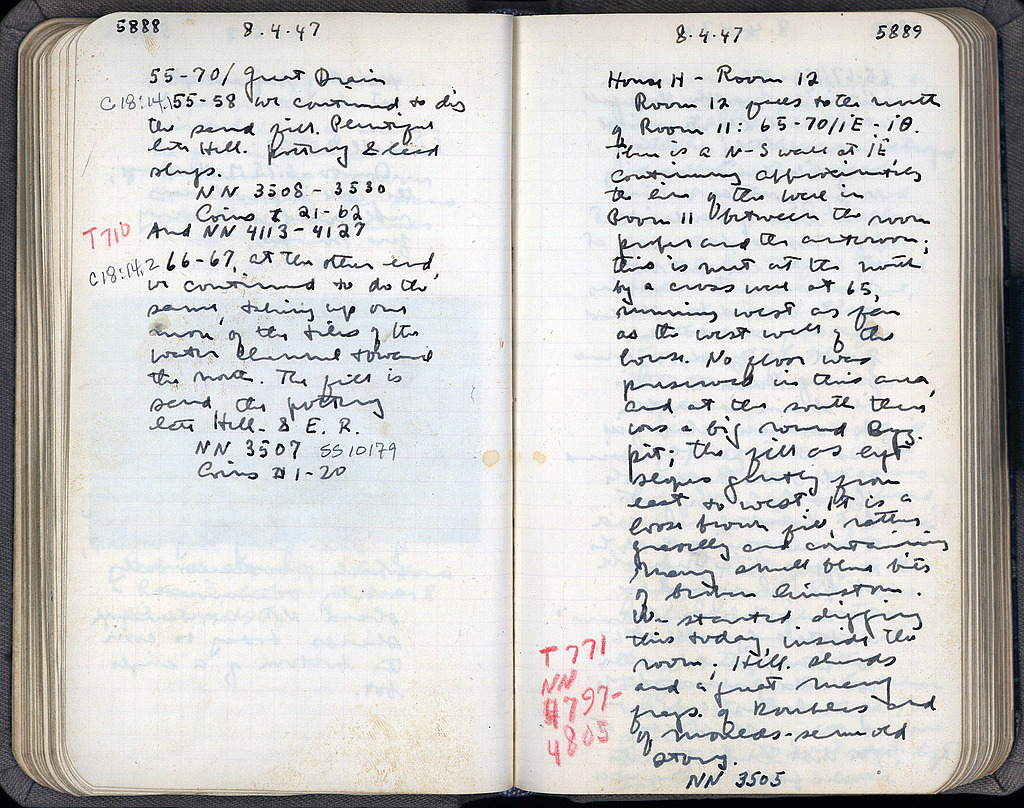 5888
8.4.47
55-70/ Great Drain
C18:14.1 55-58 we continued to dig
the sand fill. Plentiful
late Hell. pottery & lead
slugs.
NN 3508 - 3530
Coins # 21-62
T710 And NN 4113-4127
C18:14.2 66-67, at the other end,
we continued to do the
same, taking up one
more of the tiles of the
water channel toward
the north. The fill is
sand, the pottery
late Hell. & E. R.
NN 3507 SS10179
Coins # 1-20
8.4.47
5889
House H - Room 12
Room 12 lies to the north
of Room 11: 65-70/ΙΕ - ΙΘ.
There is a N-S wall at ΙΕ,
continuing approximately
the line of the wall in
Room 11 between the room
proper and the anteroom;
this is met at the north
by a cross wall at 65,
running west as far
as the west wall of the
house. No floor was
preserved in this area,
and at the south there
was a big round Byz.
pit; the fill as left
slopes gently from
east to west. It is a
loose brown fill, rather
gravelly and containing
many small blue bits
of broken limestone.
We started digging
this today, inside the
room. Hell. sherds
and a great many
frags. of
of
NN 3505
T 771
NN
4797-
4805